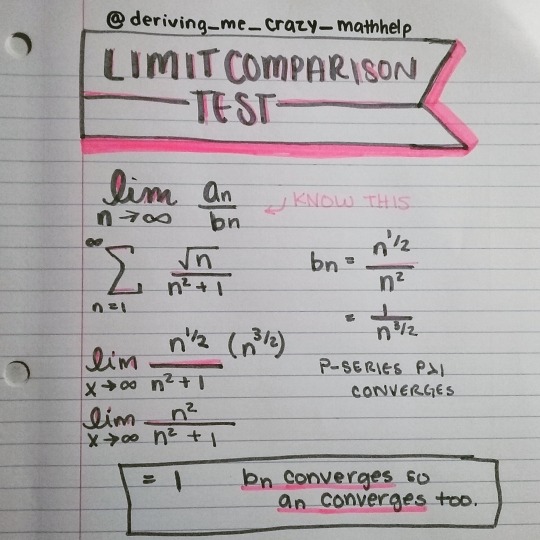 @deriving_me_crazy_mathhelp
LIMIT COMPARISON
TEST
lim n→∞ an/bn ↙ KNOW THIS
∞ Σ n=1 √n/(n²+1)
bn = n^1/2 / n²
= 1/n^3/2
P-SERIES P>1
CONVERGES
lim x→∞ n^1/2/(n²+1) (n^3/2)
lim x→∞ n²/(n²+1)
= 1 bn converges so
an converges too.